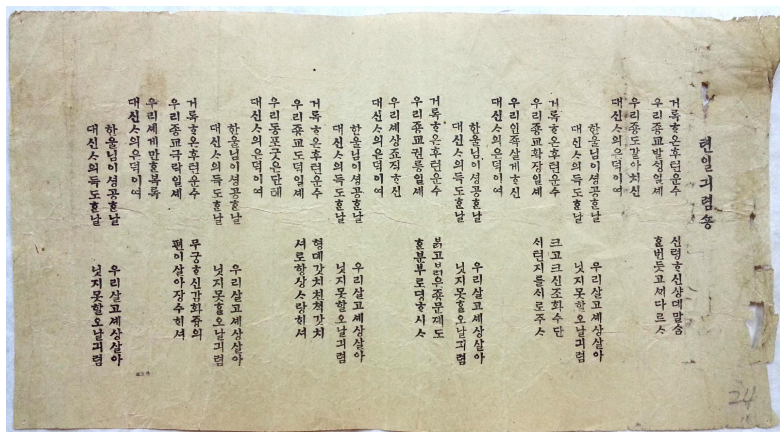 텬일긔렴송
거륵ᄒᆞ온후텬운수 신령ᄒᆞ신샹뎨말슴
우리죵교발셩일셰 ᄒᆞᆫ번듯고ᄭᆡ다르ᄉᆞ
우리죵도갈아치신
대신ᄉᆞ의은덕이여
한울님이셩공ᄒᆞᆫ날 우리살고셰상살아
대신ᄉᆞ의득도ᄒᆞᆫ날 닛지못할오날긔렴
거륵ᄒᆞ온후텬운수 크고크신조화수단
우리죵교확장일셰 서로주ᄉᆞ
우리인족살게ᄒᆞ신
대신ᄉᆞ의은덕이여
한울님이셩공ᄒᆞᆫ날 우리살고셰상살아
대신ᄉᆞ의득도ᄒᆞᆫ날 닛지못할오날긔렴
거륵ᄒᆞ온후텬운수 죵문제도
우리죵교권흥일셰 ᄒᆞᆫ분부로뎡ᄒᆞ시ᄉᆞ
우리셰상죠직ᄒᆞ신
대신ᄉᆞ의은덕이여
한울님이셩공ᄒᆞᆫ날 우리살고셰상살아
대신ᄉᆞ의득도ᄒᆞᆫ날 닛지못할오날긔렴
거륵ᄒᆞ온후텬운수 형뎨갓치쳐쳑갓치
우리죵교도덕일셰 셔로항상ᄉᆞ랑히셔
우리동포굿은단톄
대신ᄉᆞ의은덕이여
한울님이셩공ᄒᆞᆫ날 우리살고셰상살아
대신ᄉᆞ의득도ᄒᆞᆫ날 닛지못할오날긔렴
거륵ᄒᆞ온후텬운수 무궁ᄒᆞ신감화즁의
우리죵교극락일셰 편이살아장수히셔
우리셰계만흔복록
대신ᄉᆞ의은덕이여
한울님이셩공ᄒᆞᆫ날 우리살고셰상살아
대신ᄉᆞ의득도ᄒᆞᆫ날 닛지못할오날긔렴
24